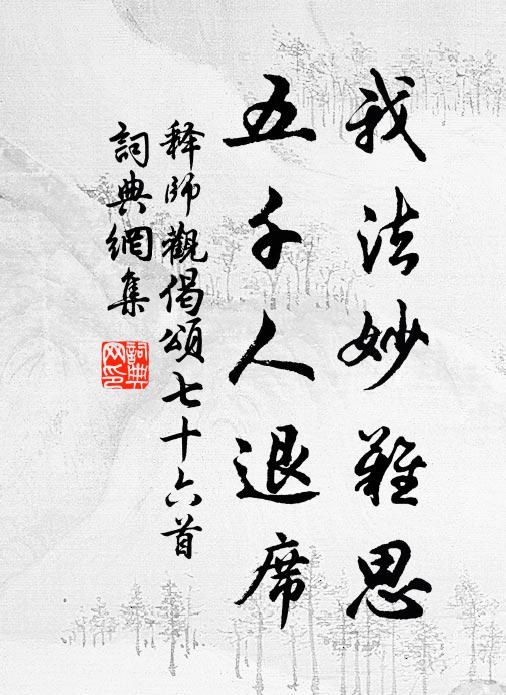 我法妙難思
五千人退席
释師觀偈頌七十六首
詞典網集
詞典網印